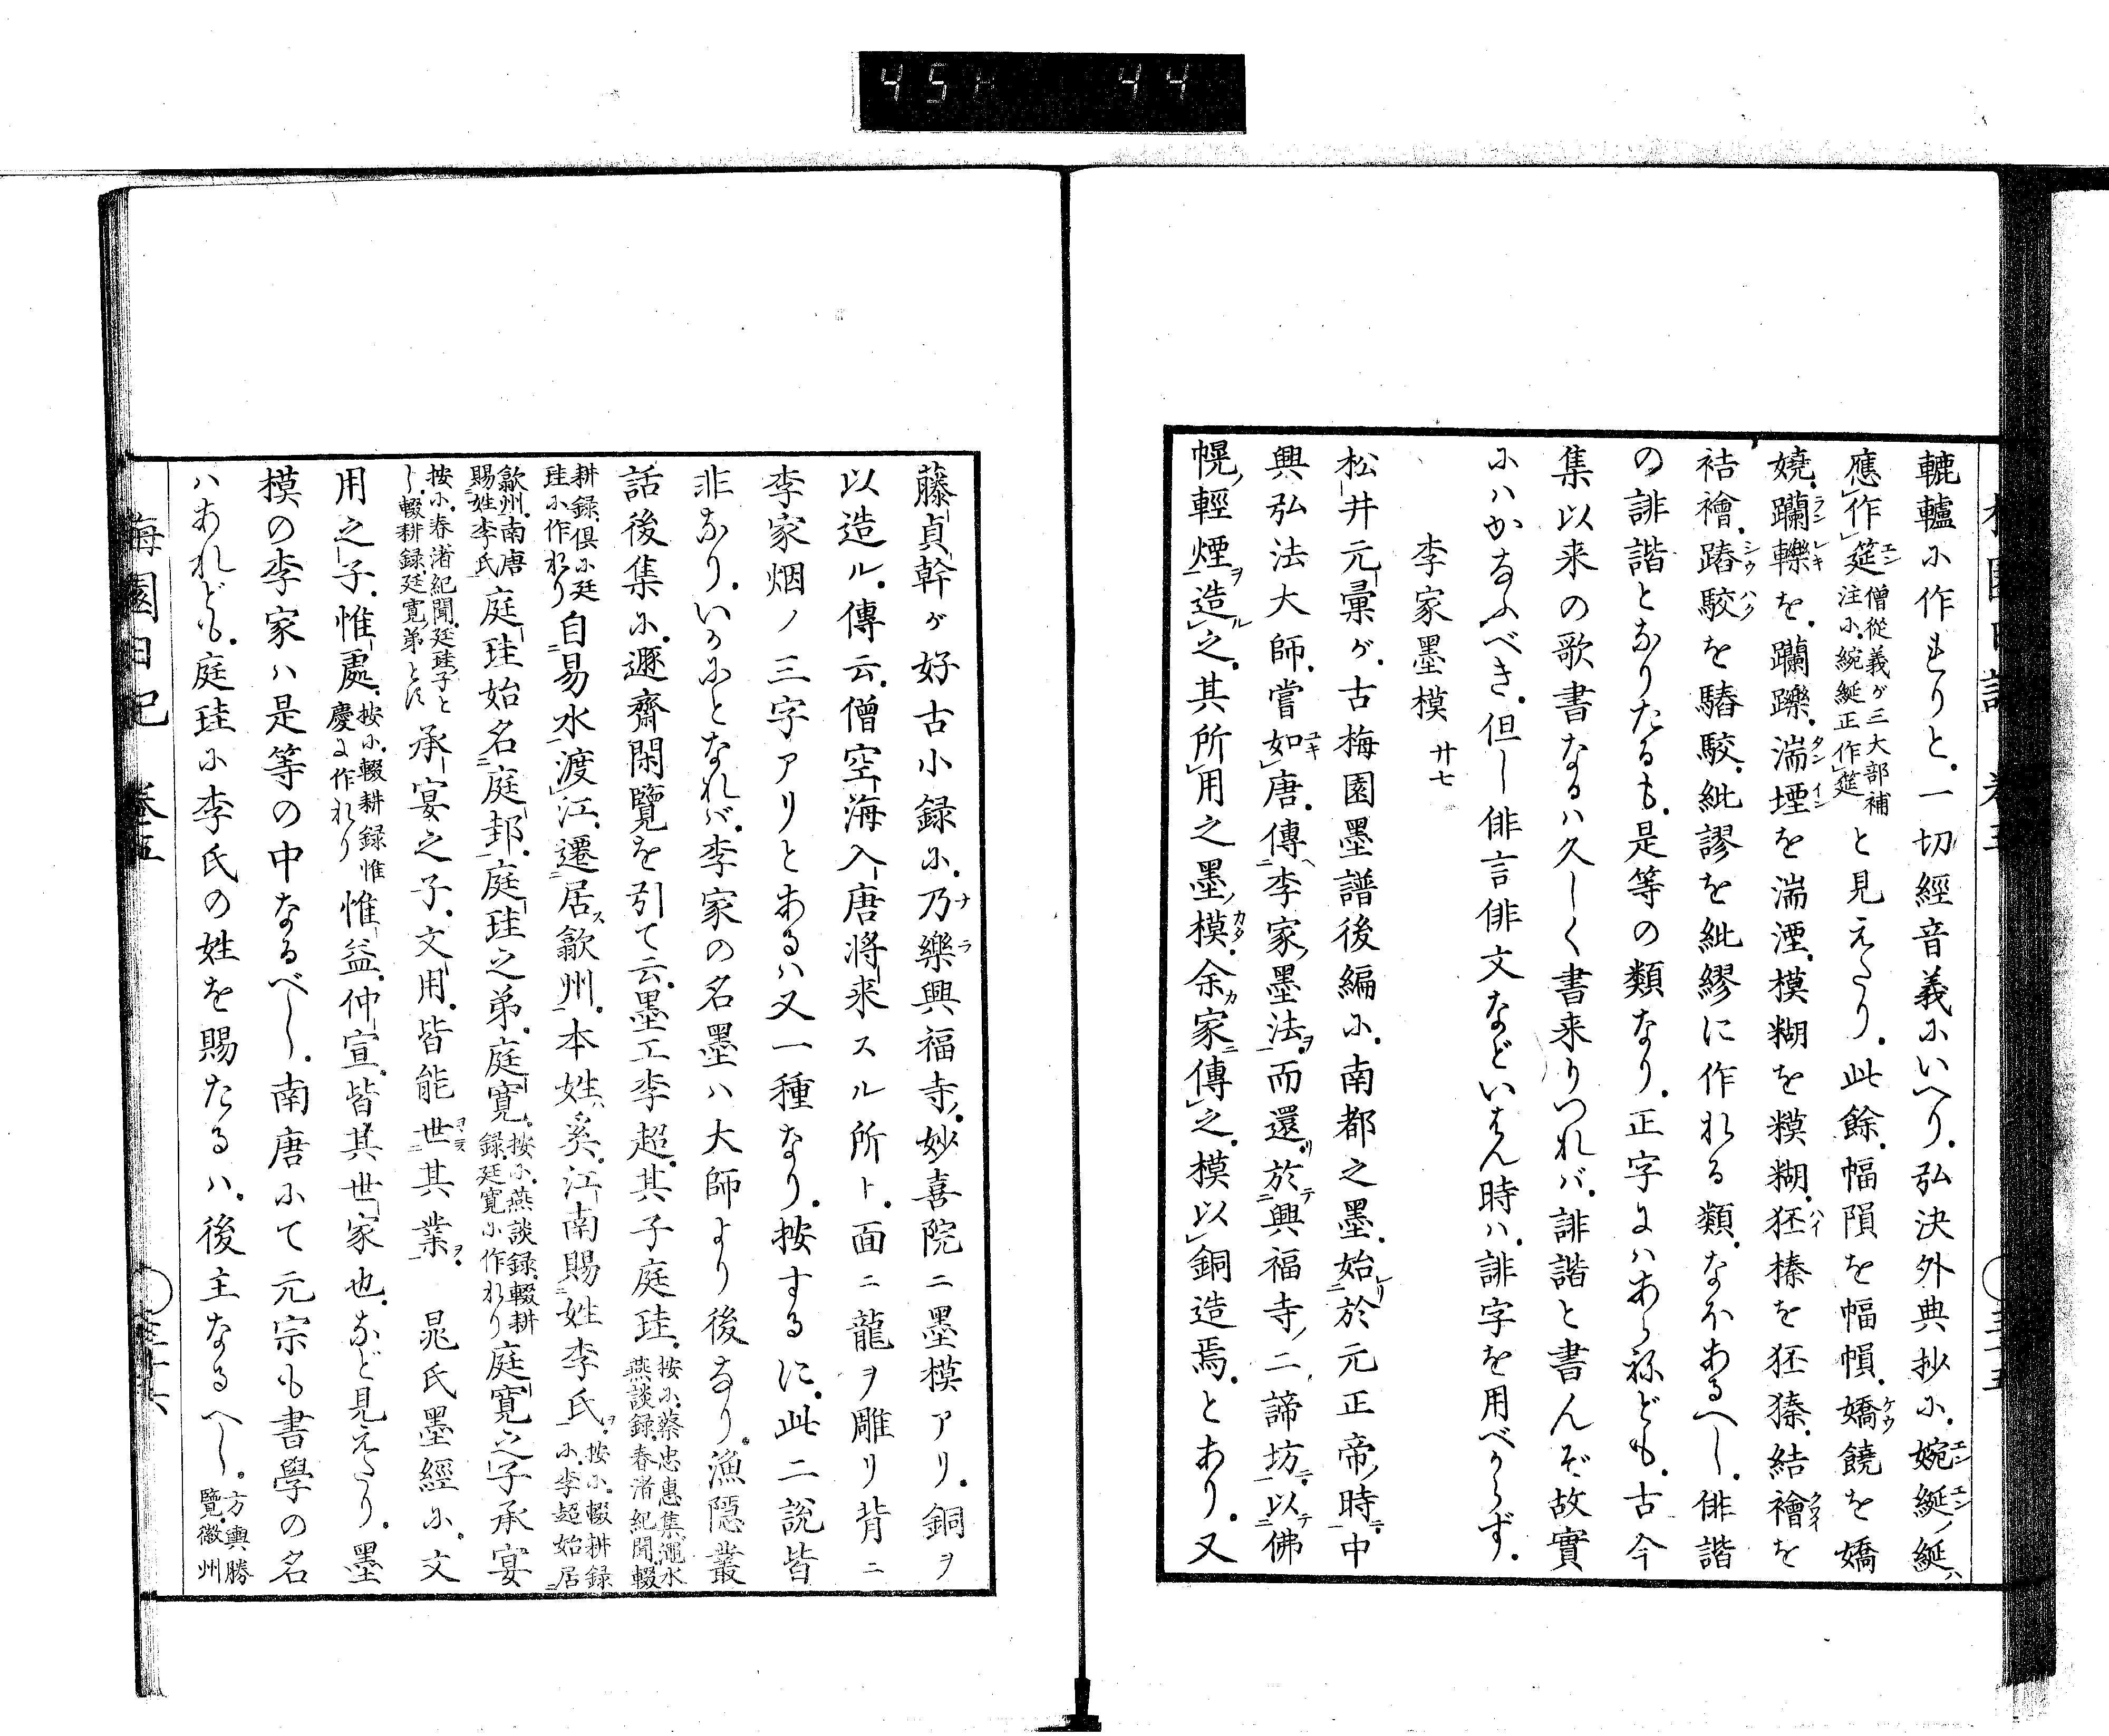 轆轤に作もりと。一切經音義にいへり。弘決外典抄に。婉綖ノ綖ハ
應作筵僧從義ガ三大部補注に。綩綖正作筵と見えたり。此餘。幅隕を幅幀。嬌饒を嬌
嬈。躙轢を。躙躒。湍堙を湍湮。模糊を糢糊。狉榛を狉獉。結襘を
祮襘。踳駮を驣駮。紕謬を紕繆に作れる類。なほあるへし。俳諧
の誹諧となりたるも。是等の類なり。正字にハあらねども。古今
集以来の歌書なるハ久しく書来りつれバ。誹諧と書んぞ故實
にハかなふべき。但し俳言俳文などいはん時ハ。誹字を用べからず。
李家墨模 廿七
松井元彙ガ。古梅園墨譜後編に。南都之墨。始於元正帝ノ時。中
興弘法大師。嘗如唐。傳李家ノ墨法。而還。於興福寺ノ二諦坊。以佛
幌ノ輕煙造之。其所用之墨ノ模。余家傳之。模以銅造焉。とあり。又
藤貞幹ガ好古小録に。乃樂興福寺。妙喜院ニ墨模アリ。銅ヲ
以造ル。傳云。僧空海入唐將来スル所ト。面ニ龍ヲ雕リ背ニ
李家烟ノ三字アリとあるハ又一種なり。按するに。此二說皆
非なり。いかにとなれバ。李家の名墨ハ大師より後なり。漁隠叢
話後集に。遯齋閑覽を引て云。墨工李超。其子庭珪。按に。蔡忠惠集。澠水燕談録。春渚紀聞。輟
耕録。倶に廷珪に作れり自易水渡江。遷居歙州。本姓奚。江南賜姓李氏。按に。輟耕録に。李超始居
歙州。南唐賜姓李氏庭珪始名庭邽。庭珪之弟。庭寛。按に。燕談録。輟耕録。廷寛に作れり庭寛之子承宴
按に。春渚紀聞。廷珪子とし。輟耕録。廷寛ノ弟とす承宴之子。文用。皆能世其業。 晁氏墨經に。文
用之子。惟處。按に。輟耕録惟慶に作れり惟益。仲宣。皆其世家也。など見えたり。墨
模の李家ハ是等の中なるべし。南唐にて元宗も書學の名
ハあれども。庭珪に李氏の姓を賜たるハ。後主なるへし。方輿勝覽。徽州
梅園日記 卷五